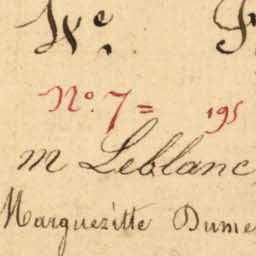 No. 7= 195
m Leblanc
Marguezitte Dume